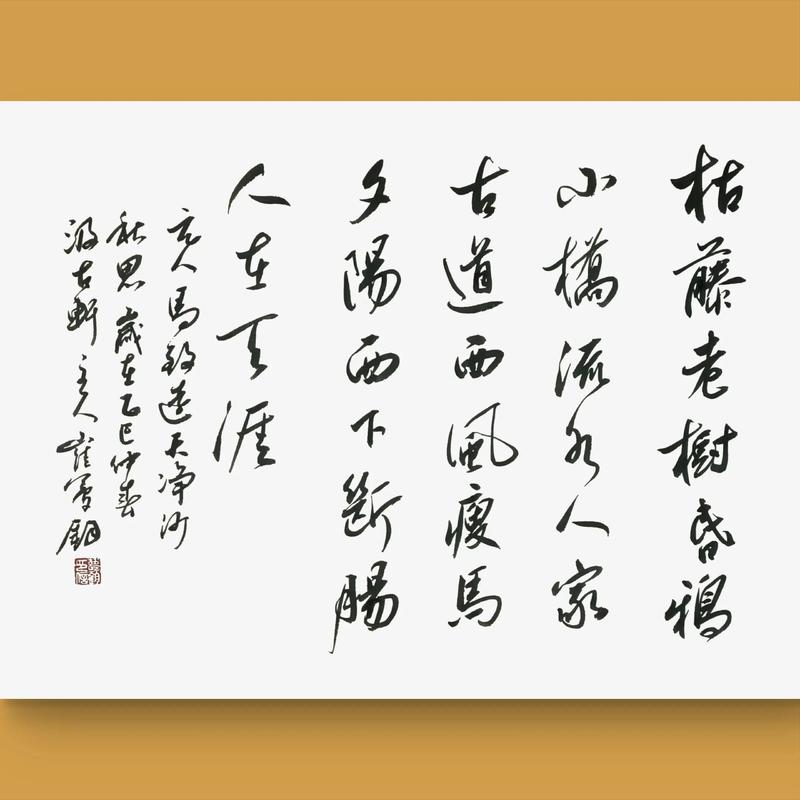 枯藤老樹昏鴉
小橋流水人家
古道西風瘦馬
夕陽西下斷腸
人在天涯
元人馬致遠天淨沙
秋思歲在乙巳仲春
汲古軒主人崔